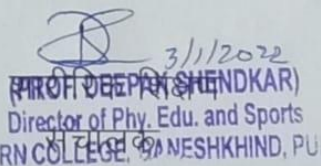 3/1/2022
(PROF. DEEPAK SHENDKAR)
Director of Phy. Edu. and Sports
संचालक
RN COLLEGE, GANESHKHIND, PU